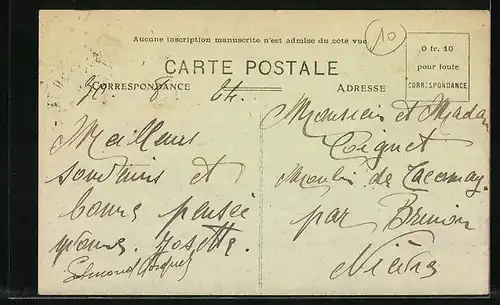 Aucune inscription manuscrite n'est admise du coté vue.
10
0 fr. 10
pour toute
CORRESPONDANCE
CARTE POSTALE
CORRESPONDANCE
ADRESSE
Meilleurs
souvenirs et
bonne pensée
Josette.
Edmond
Monsieur et Madam
Coignet
Moulin de
par Brinon
Nièvre